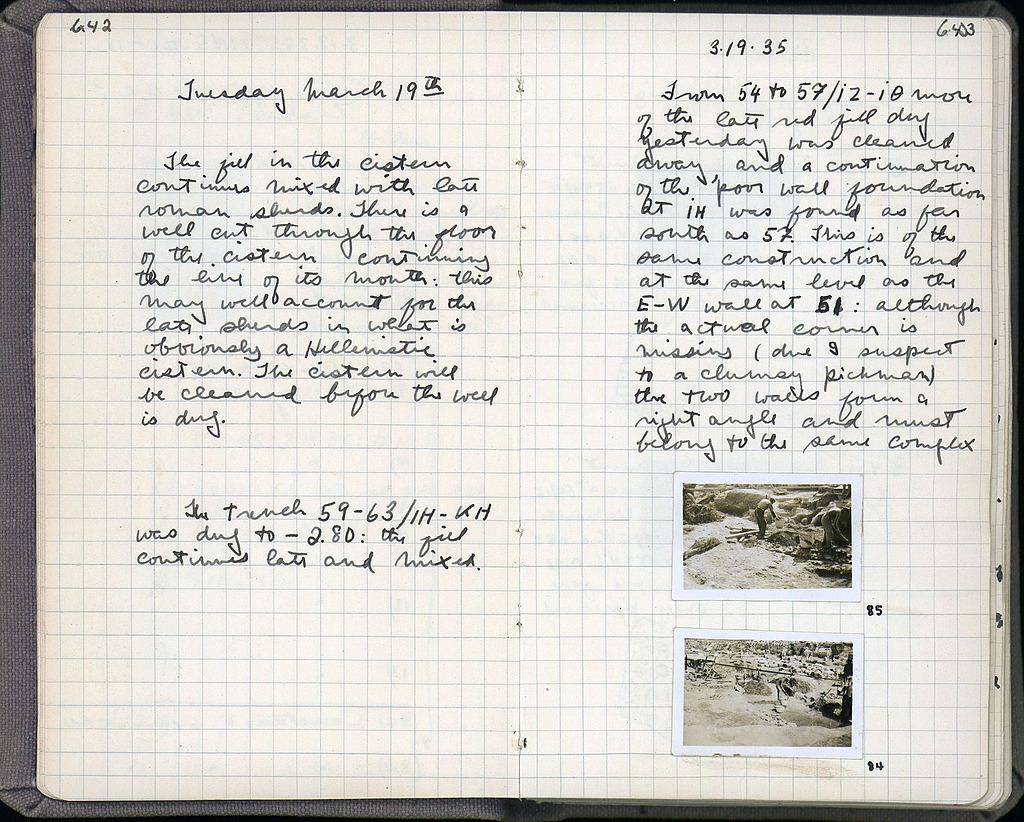 642
Tuesday March 19th
The fill in the cistern
continues mixed with late
roman sherds. There is a
well cut through the floor
of the cistern continuing
the line of its mouth: this
may well account for the
late sherds in what is
obviously a Hellenistic
cistern. The cistern will
be cleaned before the well
is dug.
The trench 59-63/IH-KH
was dug to -2.80: the fill
continues late and mixed.
643
3.19.35
From 54 to 57/ more
of the late red fill dug
yesterday was cleaned
away and a continuation
of the poor wall foundation
at IH was found as far
south as 57. This is of the
same construction and
at the same level as the
E-W wall at 51: although
the actual corner is
missing (due I suspect
to a clumsy pickman)
the two walls form a
right angle and must
belong to the same complex
85
84